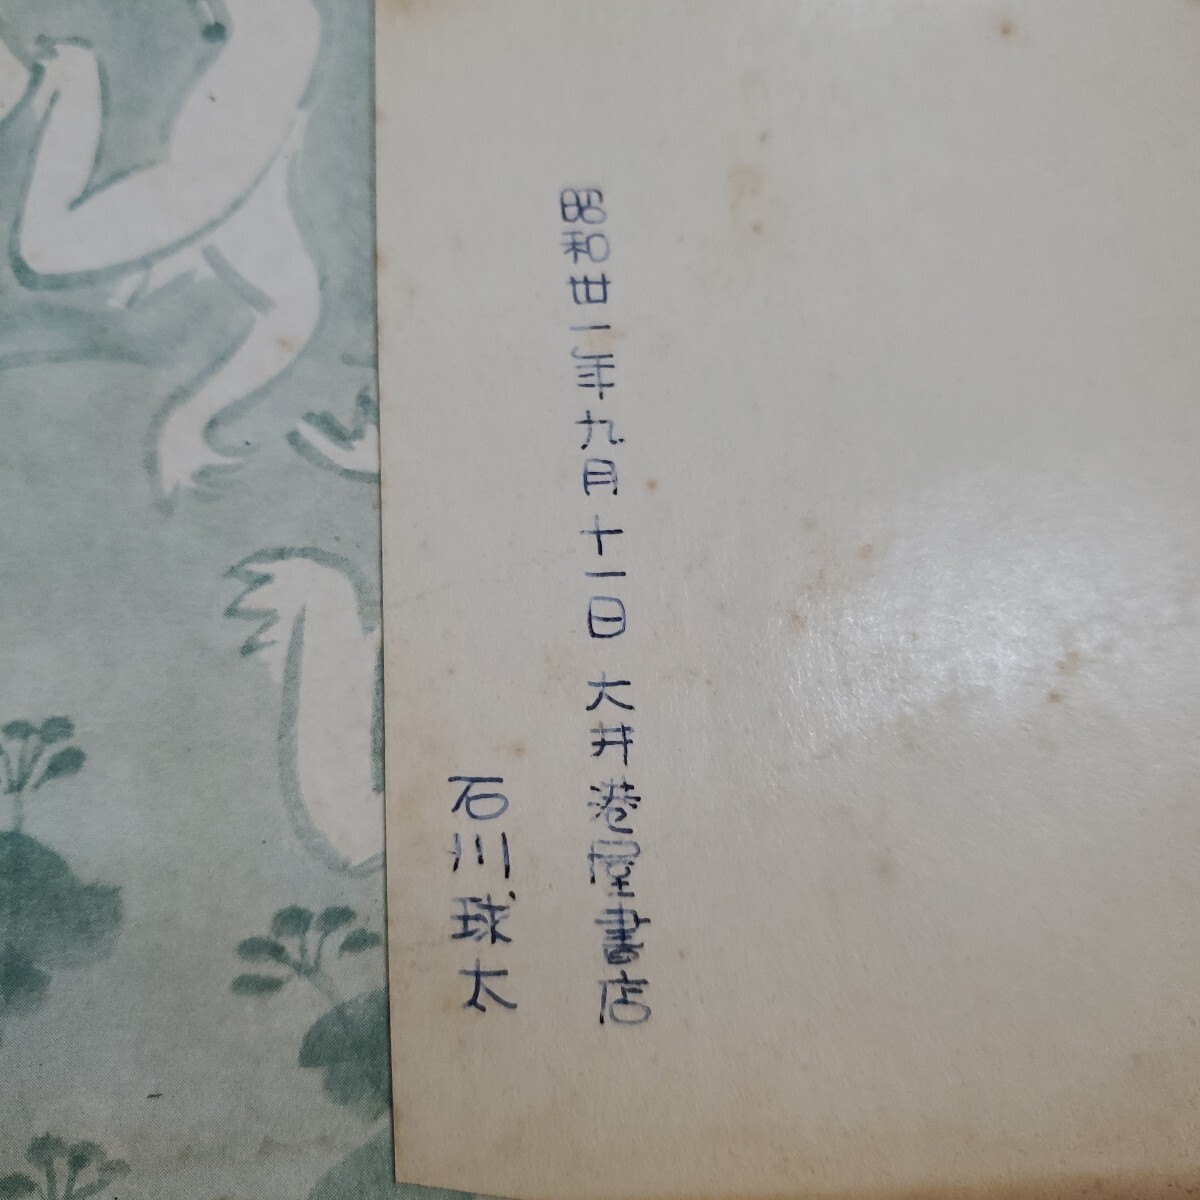 昭和廿一年九月十一日 大井港屋書店
石川球太